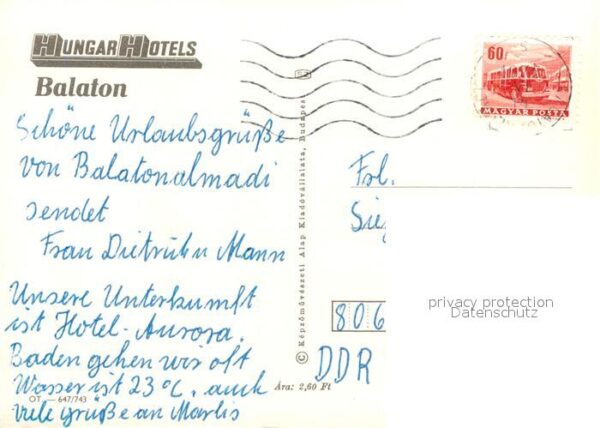 HUNGARHOTELS
Balaton
Schöne Urlaubsgrüße
von Balatonalmadi
sendet
Frau Dietrich u Mann
Unsere Unterkunft
ist Hotel-Aurora.
Baden gehen wir oft
Wasser ist 23°C. auch
viele grüße an Marlis
OT — 647/743
Ára: 2,60 Ft
© Képzőművészeti Alap Kiadóvállalata, Budapest
60f
MAGYAR POSTA
Frl.
Sieg
806
DDR
privacy protection
Datenschutz